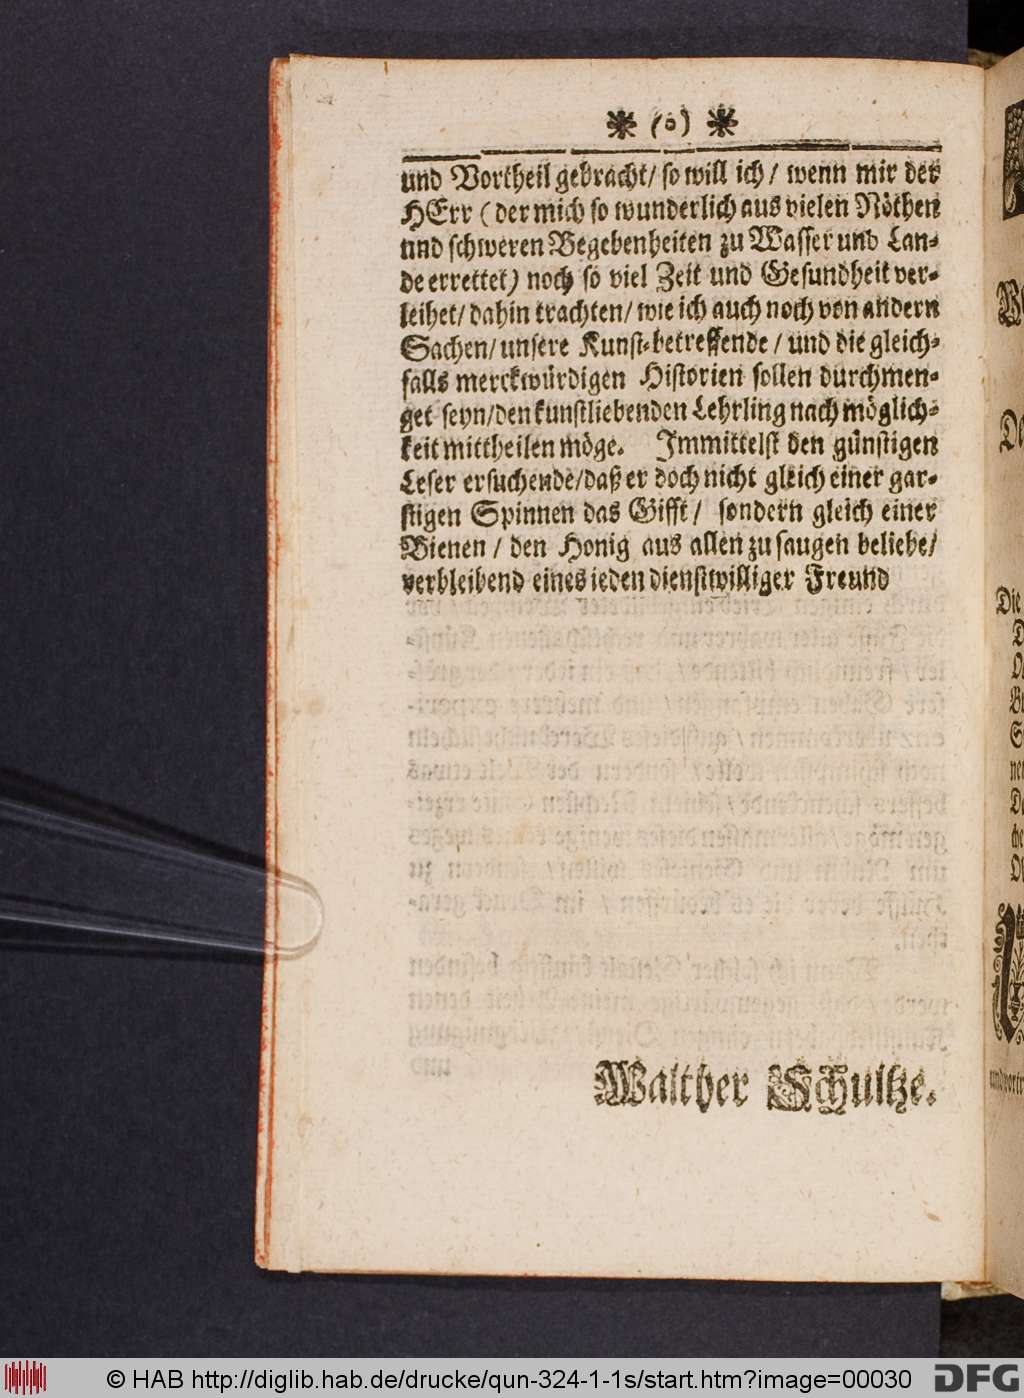 (o)
und Vortheil gebracht/ so will ich/ wenn mir der
HErr (der mich so wunderlich aus vielen Nöthen
nnd schweren Begebenheiten zu Wasser und Lan-
de errettet) noch so viel Zeit und Gesundheit ver-
leihet/ dahin trachten/ wie ich auch noch von andern
Sachen/ unsere Kunst-betreffende/ und die gleich-
falls merckwürdigen Historien sollen durchmen-
get seyn/ den kunstliebenden Lehrling nach möglich-
keit mittheilen möge. Immittelst den günstigen
Leser ersuchende/ daß er doch nicht gleich einer gar-
stigen Spinnen das Gifft/ sondern gleich einer
Bienen/ den Honig aus allen zu saugen beliebe/
verbleibend eines ieden dienstwilliger Freund
Walther Schultze.
Die
© HAB http://diglib.hab.de/drucke/qun-324-1-1s/start.htm?image=00030
DFG